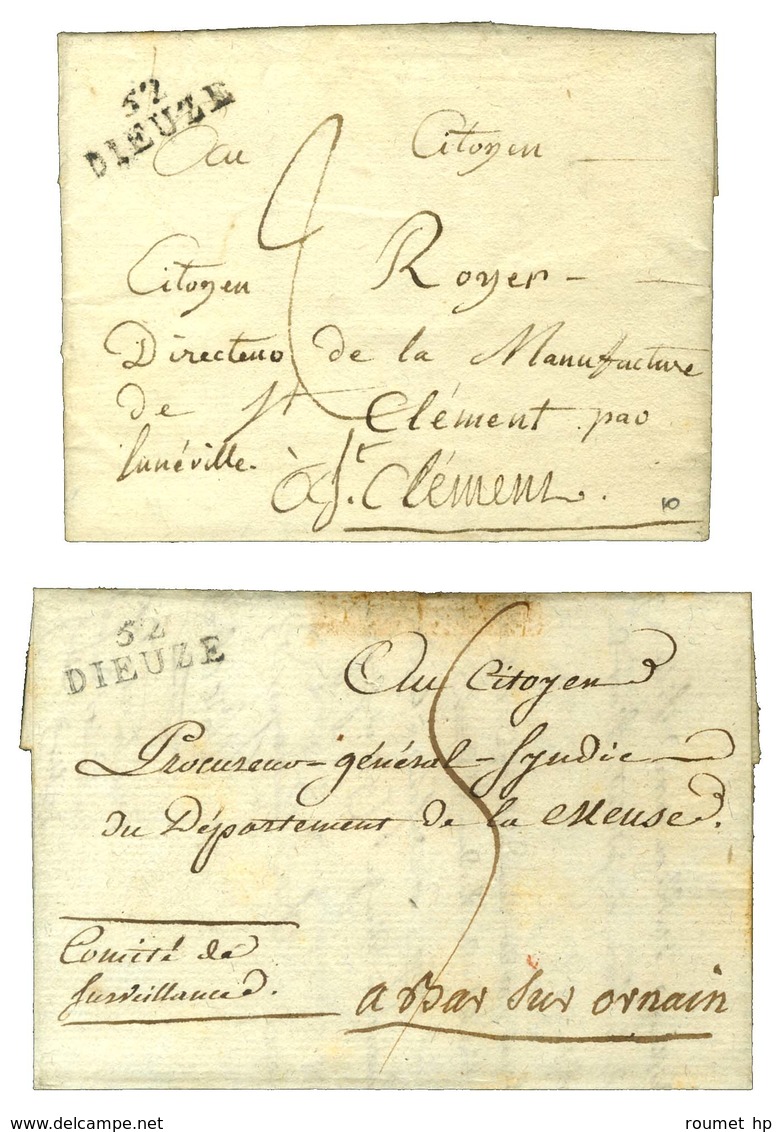 52
DIEUZE
Au Citoyen
Citoyen Royer
Directeur de la Manufacture
de St Clément par
Lunéville. à St. Clément.
10
52
DIEUZE
Au Citoyen
Procureur-général-Syndic
du Département de la Meuse.
Comité de
Surveillance.
a Bar sur ornain
roumet hp